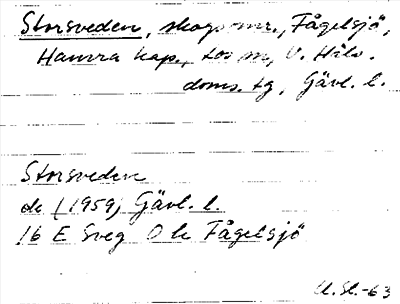 Storsveden, skogsomr., Fågelsjö,
Hamra kap., Los sn, V. Häls.
doms. tg, Gävl. l.
Storsveden
de (1959) Gävl. l.
16 E Sveg O le Fågelsjö
U.Sl.-63